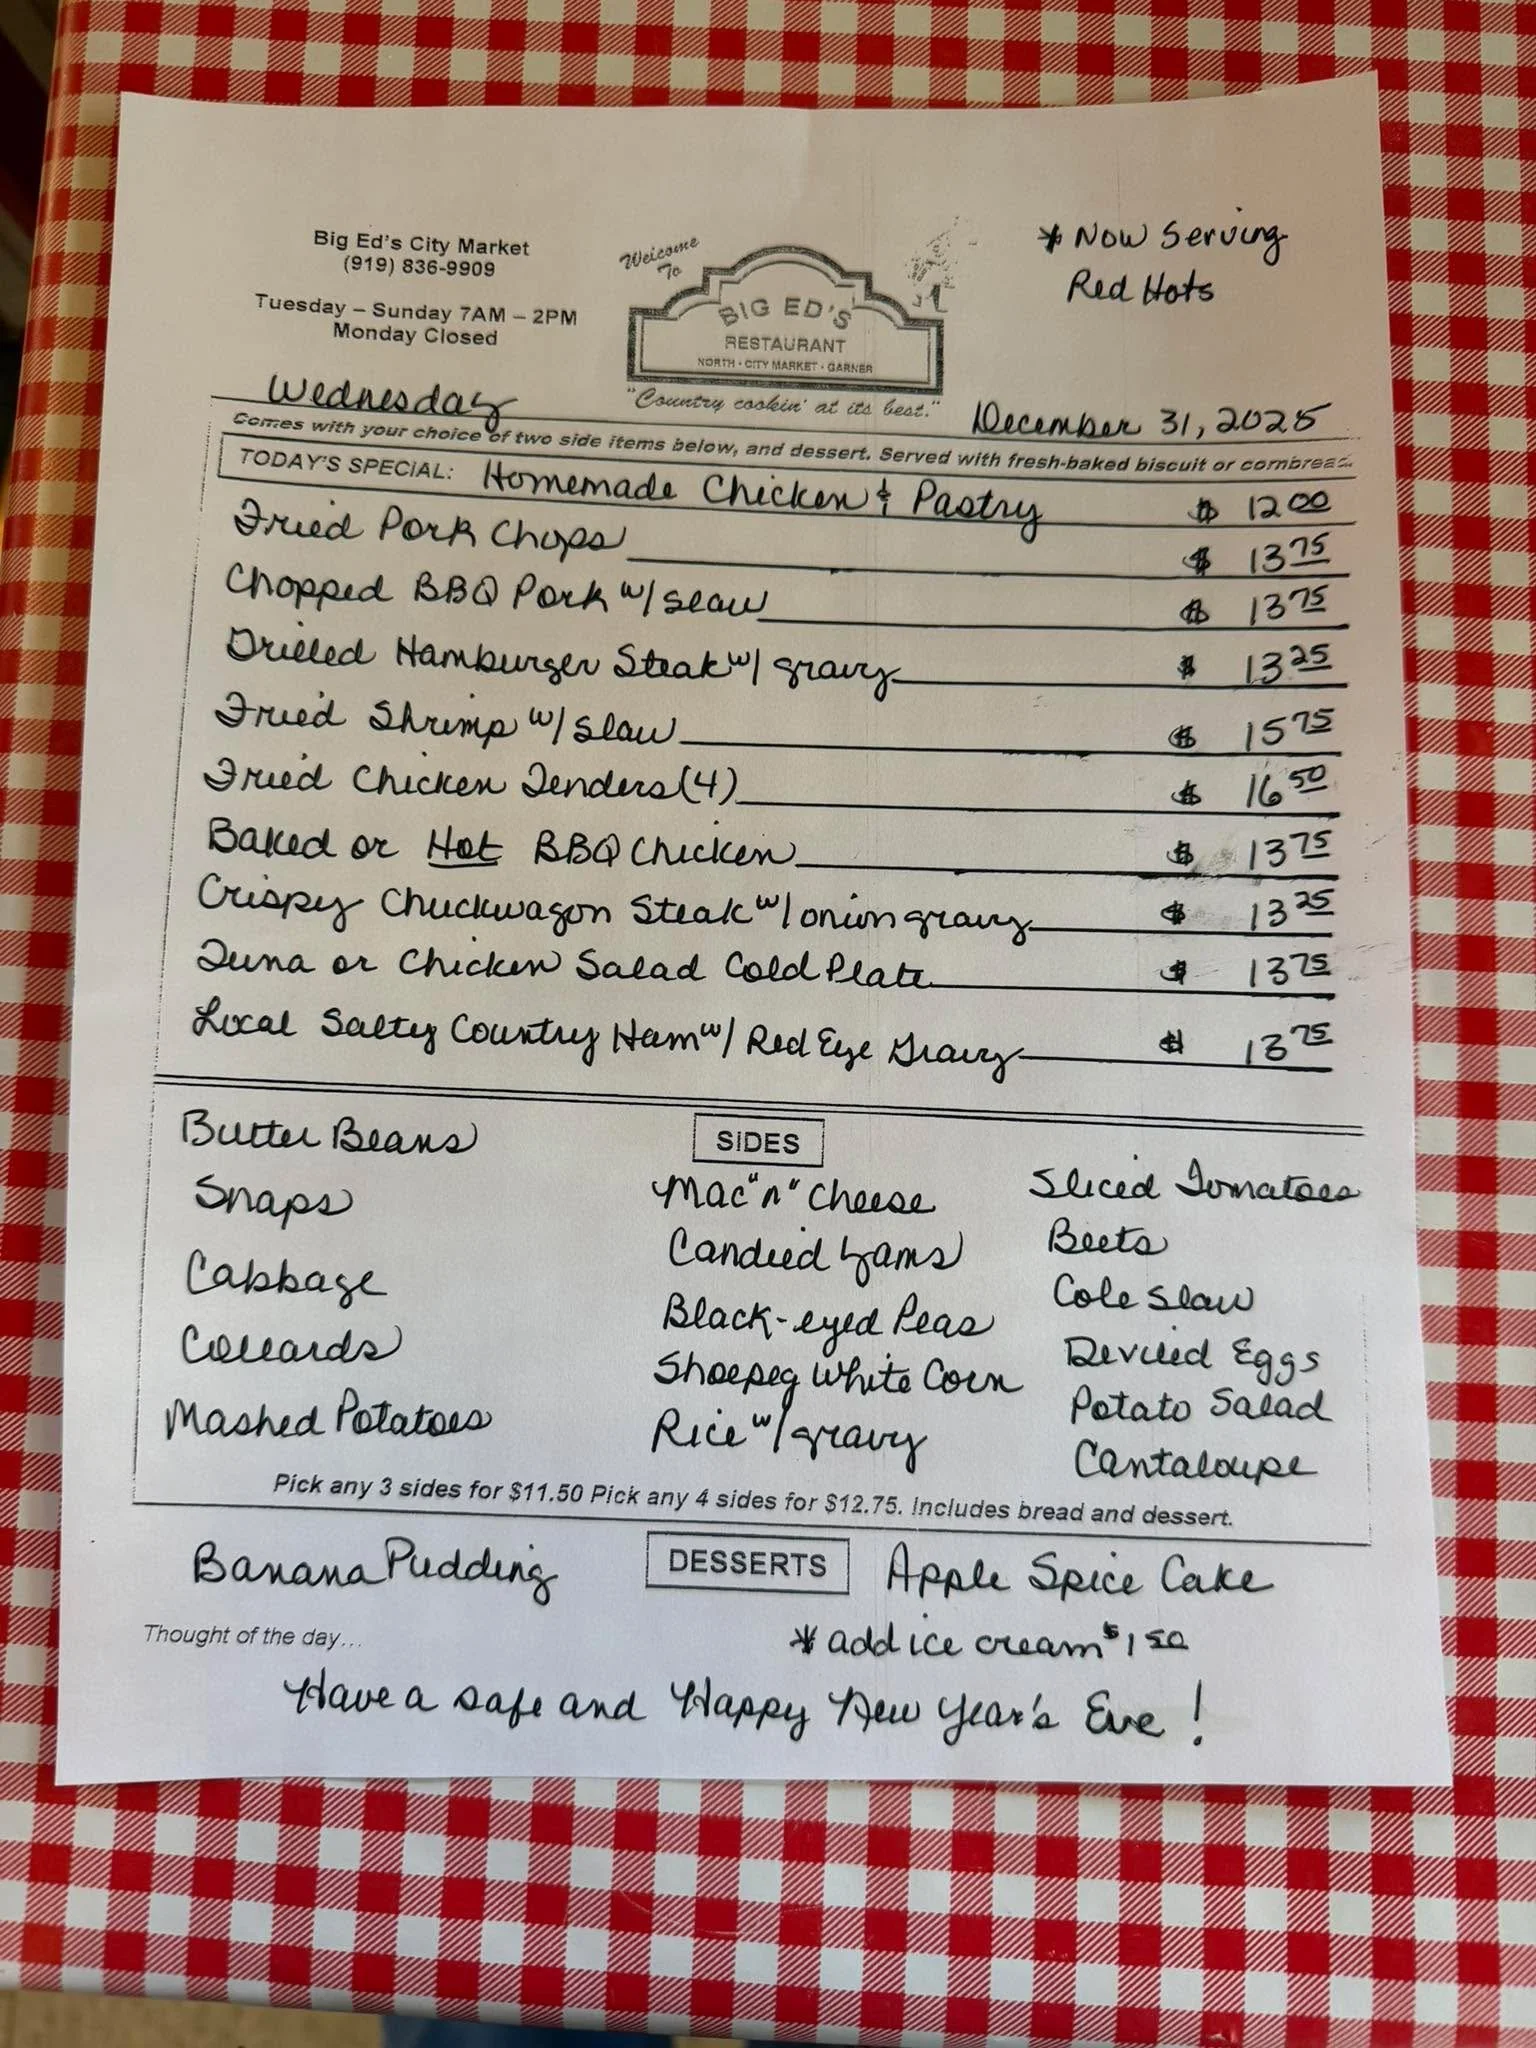 Big Ed's City Market
(919) 836-9909
Tuesday – Sunday 7AM – 2PM
Monday Closed
Welcome
To
BIG ED'S
RESTAURANT
NORTH · CITY MARKET · GARNER
"Country cookin' at its best."
* Now Serving
Red Hots
Wednesday
December 31, 2025
Comes with your choice of two side items below, and dessert. Served with fresh-baked biscuit or cornbread.
TODAY'S SPECIAL: Homemade Chicken & Pastry $ 12.00
Fried Pork Chops $ 13.75
Chopped BBQ Pork w/ slaw $ 13.75
Grilled Hamburger Steak w/ gravy $ 13.25
Fried Shrimp w/ slaw $ 15.75
Fried Chicken Tenders (4) $ 16.50
Baked or Hot BBQ Chicken $ 13.75
Crispy Chuckwagon Steak w/ onion gravy $ 13.25
Tuna or Chicken Salad Cold Plate $ 13.75
Local Salty Country Ham w/ Red Eye Gravy $ 13.75
SIDES
Butter Beans
Snaps
Cabbage
Collards
Mashed Potatoes
Mac "n" Cheese
Candied Yams
Black-eyed Peas
Shoepeg White Corn
Rice w/ gravy
Sliced Tomatoes
Beets
Cole Slaw
Deviled Eggs
Potato Salad
Cantaloupe
Pick any 3 sides for $11.50 Pick any 4 sides for $12.75. Includes bread and dessert.
DESSERTS
Banana Pudding
Apple Spice Cake
* add ice cream $1.50
Thought of the day…
Have a safe and Happy New Year's Eve!